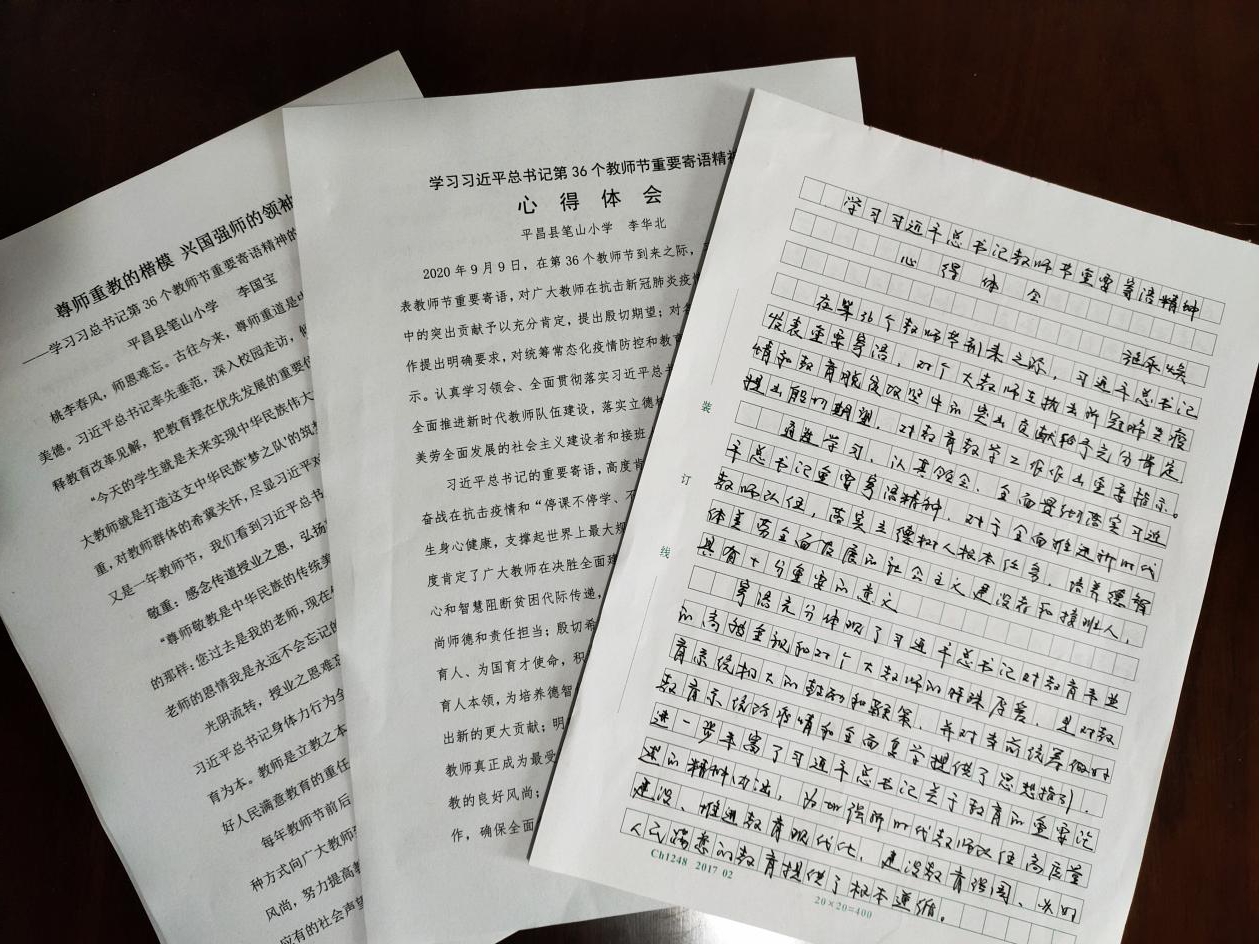 尊师重教的楷模 兴国强师的领袖
——学习习总书记第36个教师节重要寄语精神的
平昌县笔山小学 李国宝
桃李春风，师恩难忘。古往今来，尊师重道是中
美德。习近平总书记率先垂范，深入校园走访，
释教育改革见解，把教育摆在优先发展的重要
“今天的学生就是未来实现中华民族伟大
大教师就是打造这支中华民族‘梦之队’的筑
重，对教师群体的希冀关怀，尽显习近平
又是一年教师节，我们看到习近平总书
敬重：感念传道授业之恩，弘扬
“尊师敬教是中华民族的传统美
的那样：您过去是我的老师，现在
老师的恩情我是永远不会忘记的
光阴流转，授业之恩难忘
习近平总书记身体力行为全
育为本。教师是立教之本
好人民满意教育的重任
每年教师节前后
种方式向广大教师
风尚，努力提高教
应有的社会声望
学习习近平总书记第36个教师节重要寄语精神
心得体会
平昌县笔山小学 李华北
2020年9月9日，在第36个教师节到来之际，
表教师节重要寄语，对广大教师在抗击新冠肺炎疫情
中的突出贡献予以充分肯定，提出殷切期望；对
作提出明确要求，对统筹常态化疫情防控和教育
示。认真学习领会、全面贯彻落实习近平总书
全面推进新时代教师队伍建设，落实立德树
美劳全面发展的社会主义建设者和接班
习近平总书记的重要寄语，高度肯
奋战在抗击疫情和“停课不停学、不
生身心健康，支撑起世界上最大规
度肯定了广大教师在决胜全面建
心和智慧阻断贫困代际传递，
尚师德和责任担当；殷切希
育人、为国育才使命，积
育人本领，为培养德智
出新的更大贡献；明
教师真正成为最受
教的良好风尚；
作，确保全面
学习习近平总书记教师节重要寄语精神
心得体会
在第36个教师节到来之际，习近平总书记
发表重要寄语，对广大教师在抗击新冠肺炎疫
情和教育脱贫攻坚中的突出贡献给予充分肯定，
提出殷切期望，对教育教学工作作出重要指示。
通过学习，认真领会、全面贯彻落实习近
平总书记重要寄语精神，对于全面推进新时代
教师队伍，落实立德树人根本任务，培养德智
体美劳全面发展的社会主义建设者和接班人，
具有十分重要的意义
寄语充分体现了习近平总书记对教育事业
的高度重视和对广大教师的特殊厚爱，是对教
育系统极大的鼓励和鞭策，并对当前统筹做好
教育系统防疫情和全面复学提供了思想指引，
进一步丰富了习近平总书记关于教育的重要论
述的精神内涵，为加强新时代教师队伍高质量
建设、推进教育现代化、建设教育强国、办好
人民满意的教育提供了根本遵循。
装
订
线
Ch1248 2017 02
20×20=400